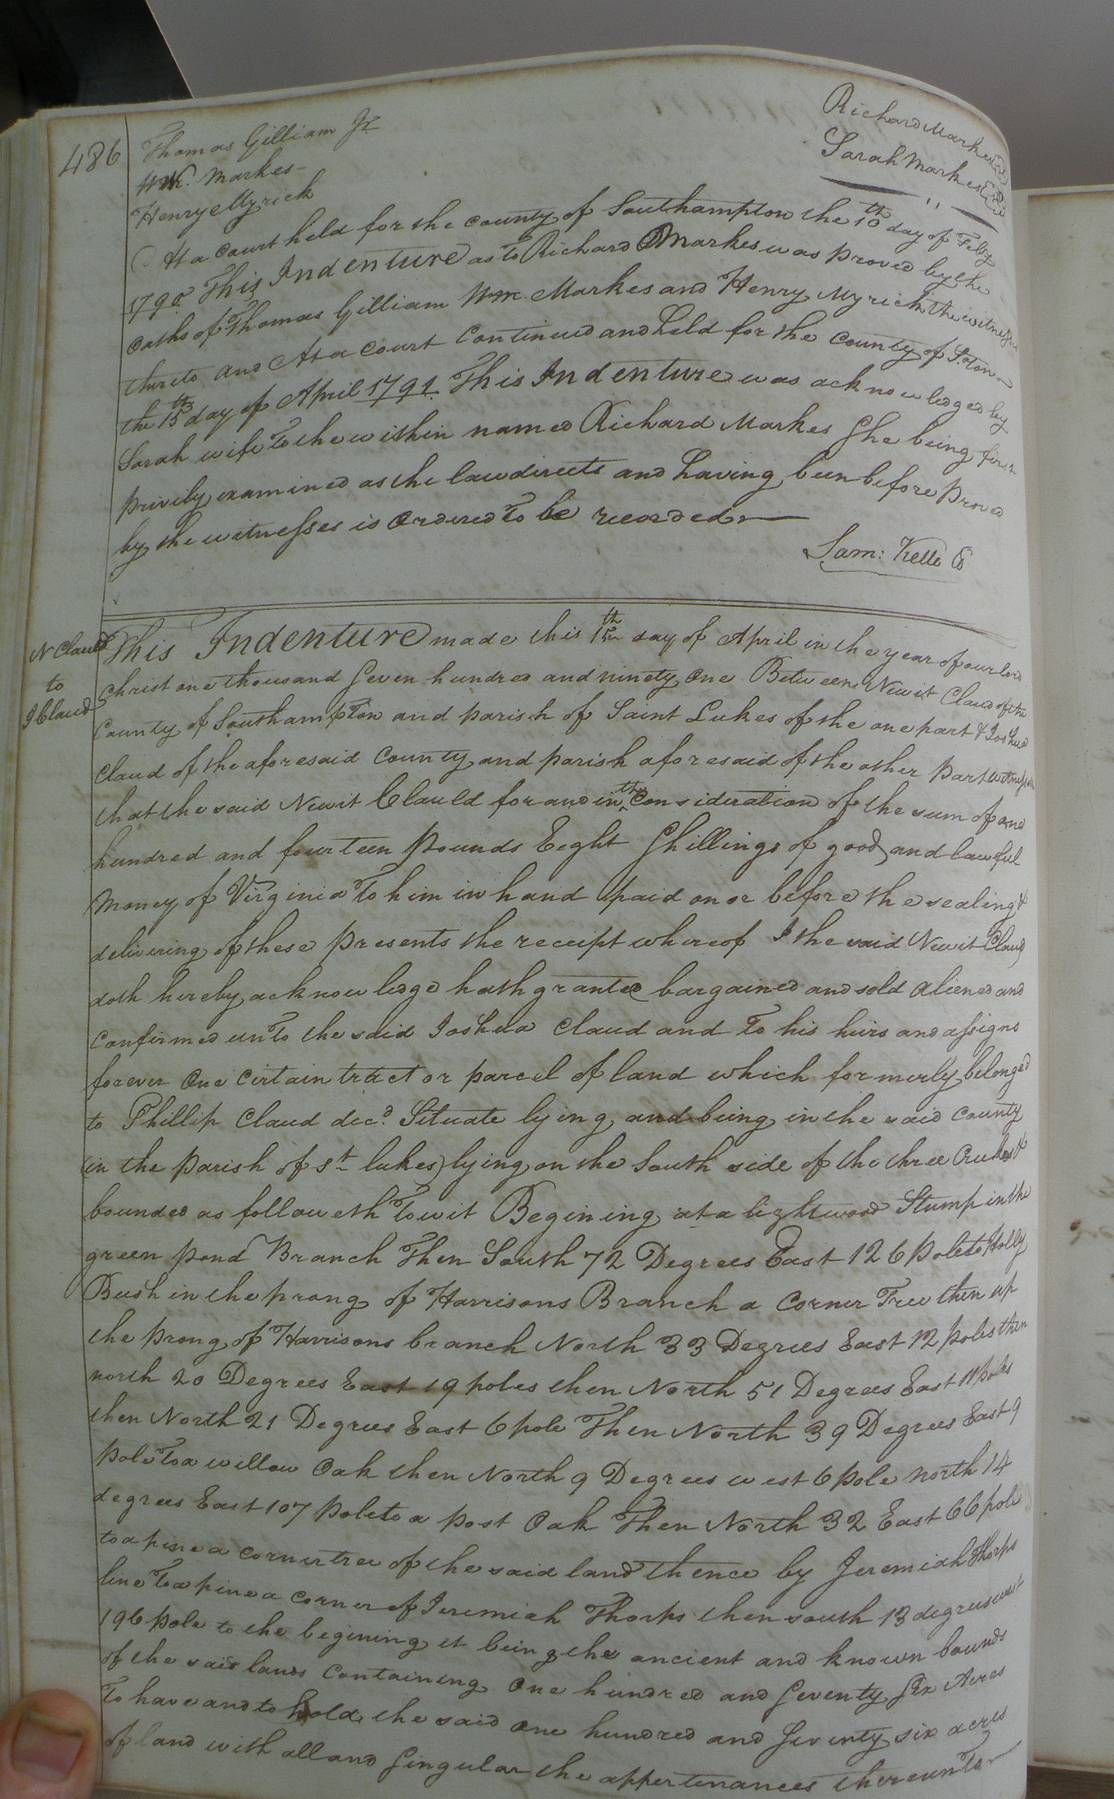 486
Thomas Gilliam Jr
Wm. Markes
Henry Myrick
Richard Markes
Sarah Markes
At a court held for the county of Southampton the 10th day of Feby
1790 This Indenture as to Richard Markes was proved by the
oaths of Thomas Gilliam Wm. Markes and Henry Myrick the witnesses
thereto and At a court continued and held for the county of Soton
the 15th day of April 1791 This Indenture was acknowledged by
Sarah wife to the within named Richard Markes She being first
privily examined as the law directs and having been before proved
by the witnesses is ordered to be recorded
Sam: Kello
N Claud
to
J Claud
This Indenture made this day of April in the year of our lord
Christ one thousand Seven hundred and ninety one Between Newit Claud of the
County of Southampton and parish of Saint Lukes of the one part & Joshua
Claud of the aforesaid County and parish aforesaid of the other part witnesseth
that the said Newit Clauld for and in the Consideration of the sum of one
hundred and fourteen pounds Eeght Shillings of good and lawful
money of Virginia To him in hand paid on or before the sealing &
delivering of these presents the receipt whereof I the said Newit Claud
doth hereby acknowledge hath granted bargained and sold aliened and
Confirmed unto the said Joshua Claud and To his heirs and assigns
forever One Certain tract or parcel of land which formerly belonged
to Phillip Claud decd. Situate lying and being in the said County
(in the parish of St. lukes) lying on the South side of the three Creeks &
bounded as followeth Towit Begining at a lightwood Stump in the
green pond Branch Then South 72 Degrees East 126 pole to Holly
Bush in the prong of Harrisons Branch a Corner Tree then up
the prong of Harrisons branch North 33 Degrees East 12 poles then
north 20 Degrees East 19 poles then North 51 Degrees East 11 poles
then North 21 Degrees East 6 pole Then North 39 Degrees East 9
pole To a willow Oak then North 9 Degrees west 6 pole north 14
degrees East 107 pole to a post Oak Then North 32 East 66 pole
to a pine a corner tree of the said land thence by Jeremiah Thorps
line To a pine a corner of Jeremiah Thorps then south 13 degrees west
196 pole to the begining it being the ancient and known bounds
of the said lands Containing One hundred and Seventy Six Acres
To have and to hold the said one hundred and Seventy six acres
of land with all and Singular the appertenances thereunto